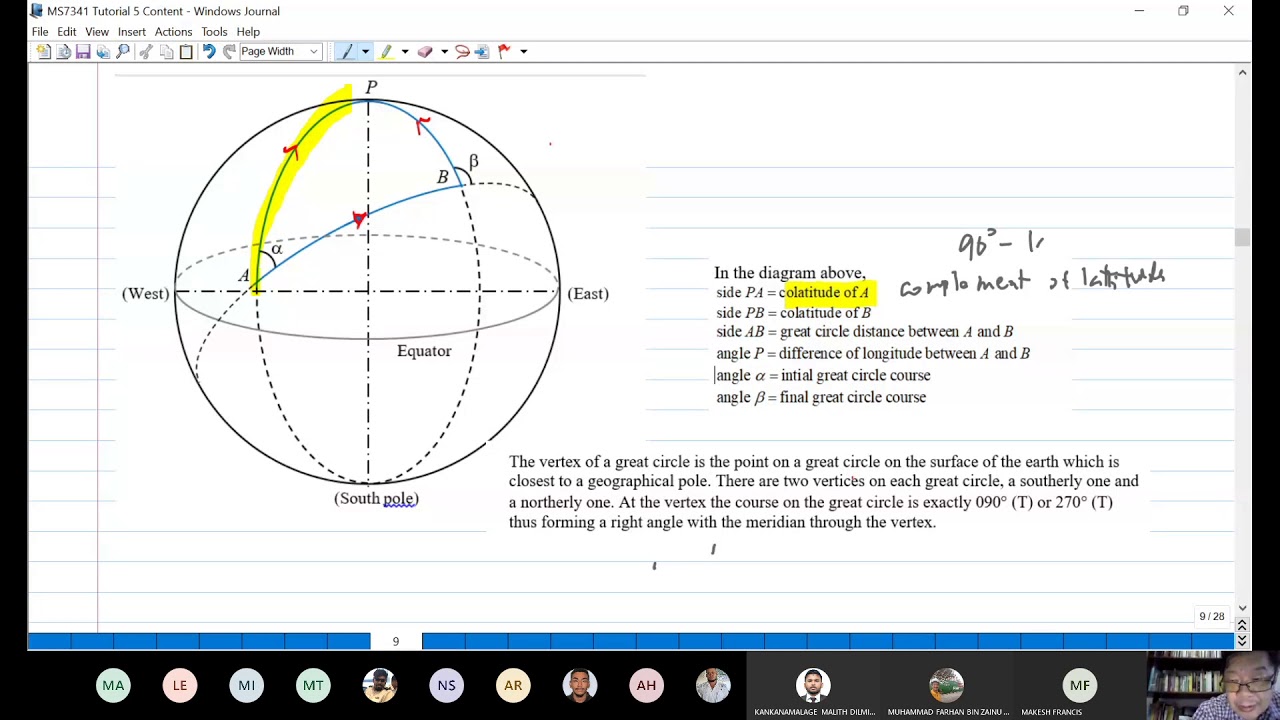 MS7341 Tutorial 5 Content - Windows Journal
File Edit View Insert Actions Tools Help
Page Width
P
β
B
α
A
(West)
(East)
Equator
(South pole)
90° -
complement of latitude
In the diagram above,
side PA = colatitude of A
side PB = colatitude of B
side AB = great circle distance between A and B
angle P = difference of longitude between A and B
angle α = intial great circle course
angle β = final great circle course
The vertex of a great circle is the point on a great circle on the surface of the earth which is
closest to a geographical pole. There are two vertices on each great circle, a southerly one and
a northerly one. At the vertex the course on the great circle is exactly 090° (T) or 270° (T)
thus forming a right angle with the meridian through the vertex.
9 / 28
9
MA LE MI MT NS AR AH MF
KANKANAMALAGE MALITH DILMI... MUHAMMAD FARHAN BIN ZAINU ... MAKESH FRANCIS